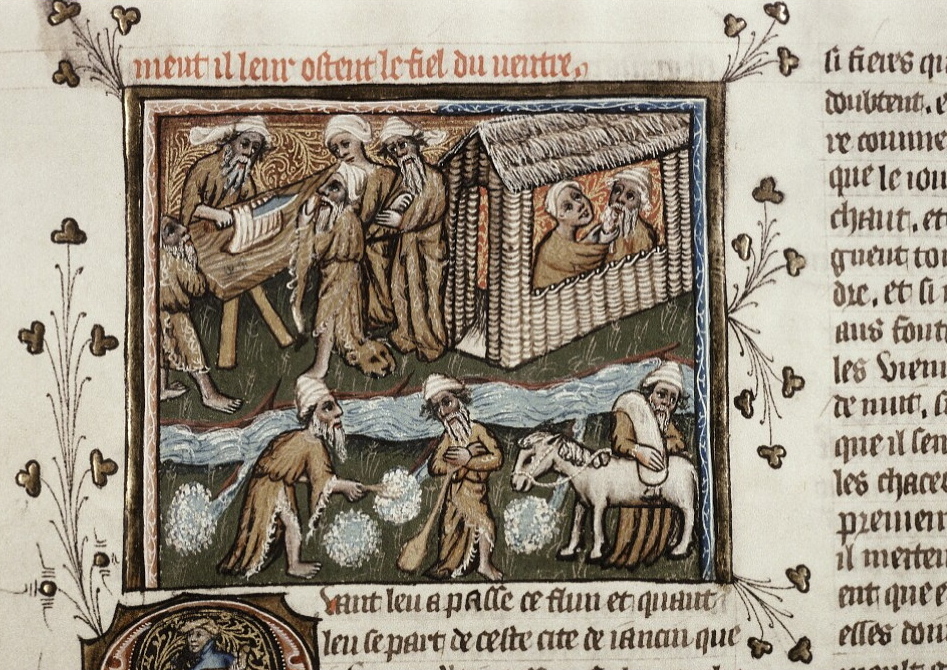 ment il leur ostent le fiel du ventre.
vant leu a passe ce flun et quant
leu se part de ceste cite de iancin que
si fieres qu
doubtent. e
re comme
que le iou
chaut. et
guent tou
dre. et si
aus sont
les
de nuit. s
que il sen
les chaces
premien
il metten
ent que e
elles don